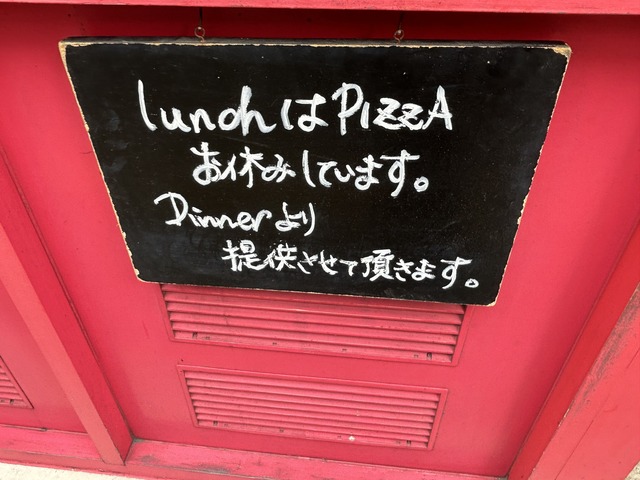 lunchはPIZZA
お休みしています。
Dinnerより
提供させて頂きます。